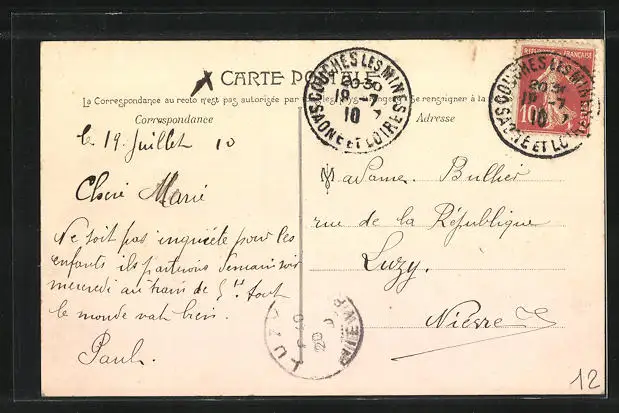 CARTE POSTALE
La Correspondance au recto n'est pas autorisée par
Se renseigner à la
Correspondance
Adresse
COUCHES LES MINES
20 30
19 - 7
10
SAONE ET LOIRE
REPUBLIQUE FRANÇAISE
10
COUCHES LES MINES
19 - 7
10
SAONE ET LOIRE
C. 19 Juillet 10
Cheri Marie
Ne soit pas inquiète pour les
enfants ils partirons demain soir
mercredi au train de 5 hs tout
le monde vat bien.
Paul.
Madame Bullier
rue de la République
Luzy.
Nièvre
LUZY
20
NIEVRE
12